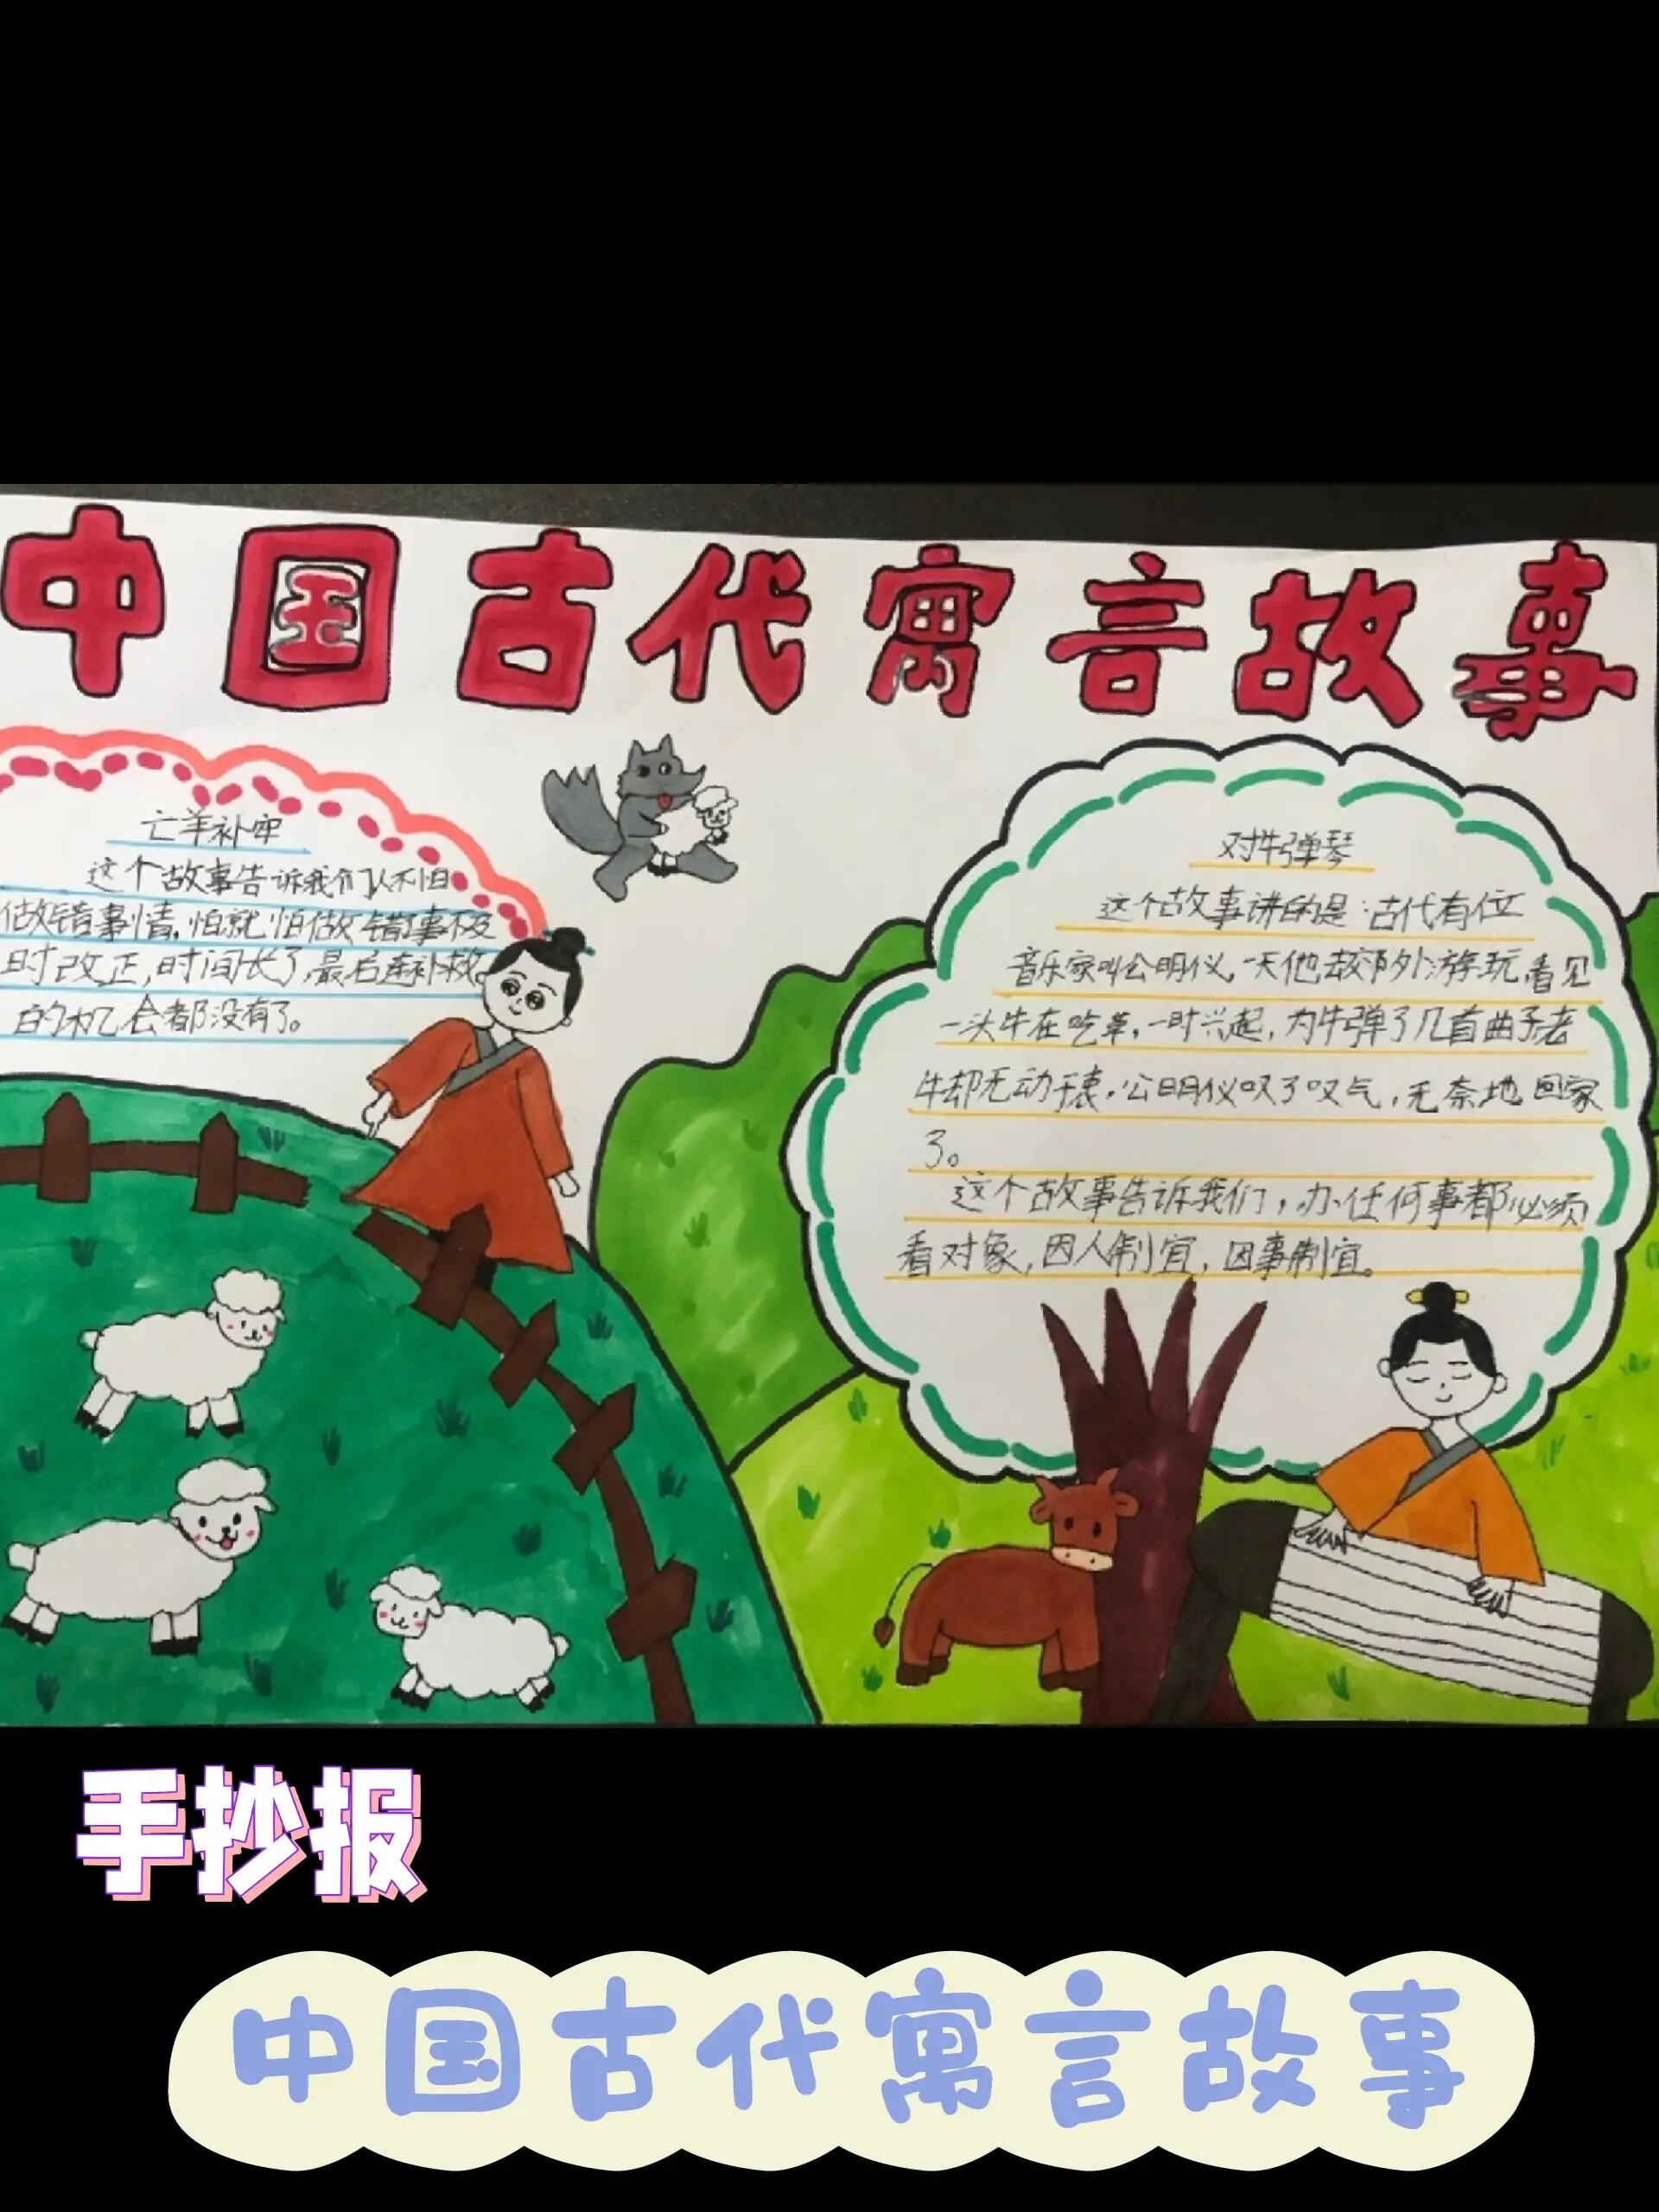 中国古代寓言故事
亡羊补牢
这个故事告诉我们人不怕
做错事情,怕就怕做错事不及
时改正,时间长了,最后连补救
的机会都没有了。
对牛弹琴
这个故事讲的是:古代有位
音乐家叫公明仪,一天他去郊外游玩,看见
一头牛在吃草,一时兴起,为牛弹了几首曲子老
牛却无动于衷,公明仪叹了叹气,无奈地回家
了。
这个故事告诉我们,办任何事都必须
看对象,因人制宜,因事制宜。
手抄报
中国古代寓言故事